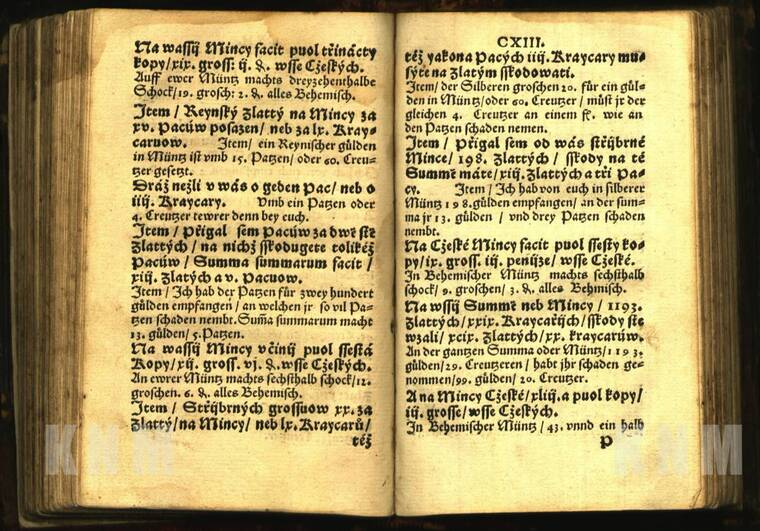 Na wassij Mincy facit puol třinácty
kopy/xix. gross: ij. &. wsse Cżeských.
Auff ewer Müntz machts dreyzehenthalbe
Schock/19. grosch: 2. &. alles Behemisch.
Item / Reynský zlattý na Mincy za
xv. Pacúw posazen/ neb za lx. Kray-
caruow. Item/ ein Reynischer gülden
in Müntz ist vmb 15. Patzen/ oder 60. Creu-
tzer gesetzt.
Dráž nežli v wás o geden Pac/ neb o
iiij. Kraycary. Vmb ein Patzen oder
4. Creutzer tewrer denn bey euch.
Item / Přigal sem Pacúw za dwě stě
zlattých / na nichž sskodugete tolikéž
Pacúw / Summa summarum facit /
xiij. zlatých a v. Pacuow.
Item / Ich hab der Patzen für zwey hundert
gülden empfangen / an welchen jr so vil Pa-
tzen schaden nembt. Sum̃a summarum macht
13. gülden / 5. Patzen.
Na wassij Mincy včinij puol ssestá
Kopy/xij. gross. vj. &. wsse Cżeských.
An ewrer Müntz machts sechsthalb schock/12.
groschen. 6. &. alles Behemisch.
Item / Střijbrných grossuow xx. za
zlattý/na Mincy/ neb lx. Kraycarů/
též
CXIII.
též yakona Pacých iiij. Kraycary mu-
sýte na zlatým sskodowati.
Item/ der Silberen groschen 20. für ein gül-
den in Müntz/oder 60. Creutzer / müst jr der
gleichen 4. Creutzer an einem fl. wie an
den Patzen schaden nemen.
Item / Přigal sem od wás střijbrné
Mince/ 198. zlattých / sskody na té
Summě máte/xiij. zlattých a tři Pa-
cy. Item / Ich hab von euch in silberer
Müntz 198. gülden empfangen/ an der sum-
ma jr 13. gülden / vnd drey Patzen schaden
nembt.
Na Cżeské Mincy facit puol ssesty ko-
py/ix. gross. iij. penijze/ wsse Cżeské.
In Behemischer Müntz machts sechsthalb
schock/ 9. groschen/ 3. &. alles Behmisch.
Na wssij Summě neb Mincy / 1193.
zlattých/xxix. Kraycařijch/sskody ste
wzali/ xcix. zlattých/xx. kraycarúw.
An der gantzen Summa oder Müntz/1193.
gülden/29. Creutzeren / habt jhr schaden ge-
nommen/99. gülden/ 20. Creutzer.
A na Mincy Cżeské/xliij. a puol kopy/
iij. grosse/ wsse Cżeských.
In Behemischer Müntz / 43. vnnd ein halb
P
KNM
KNM